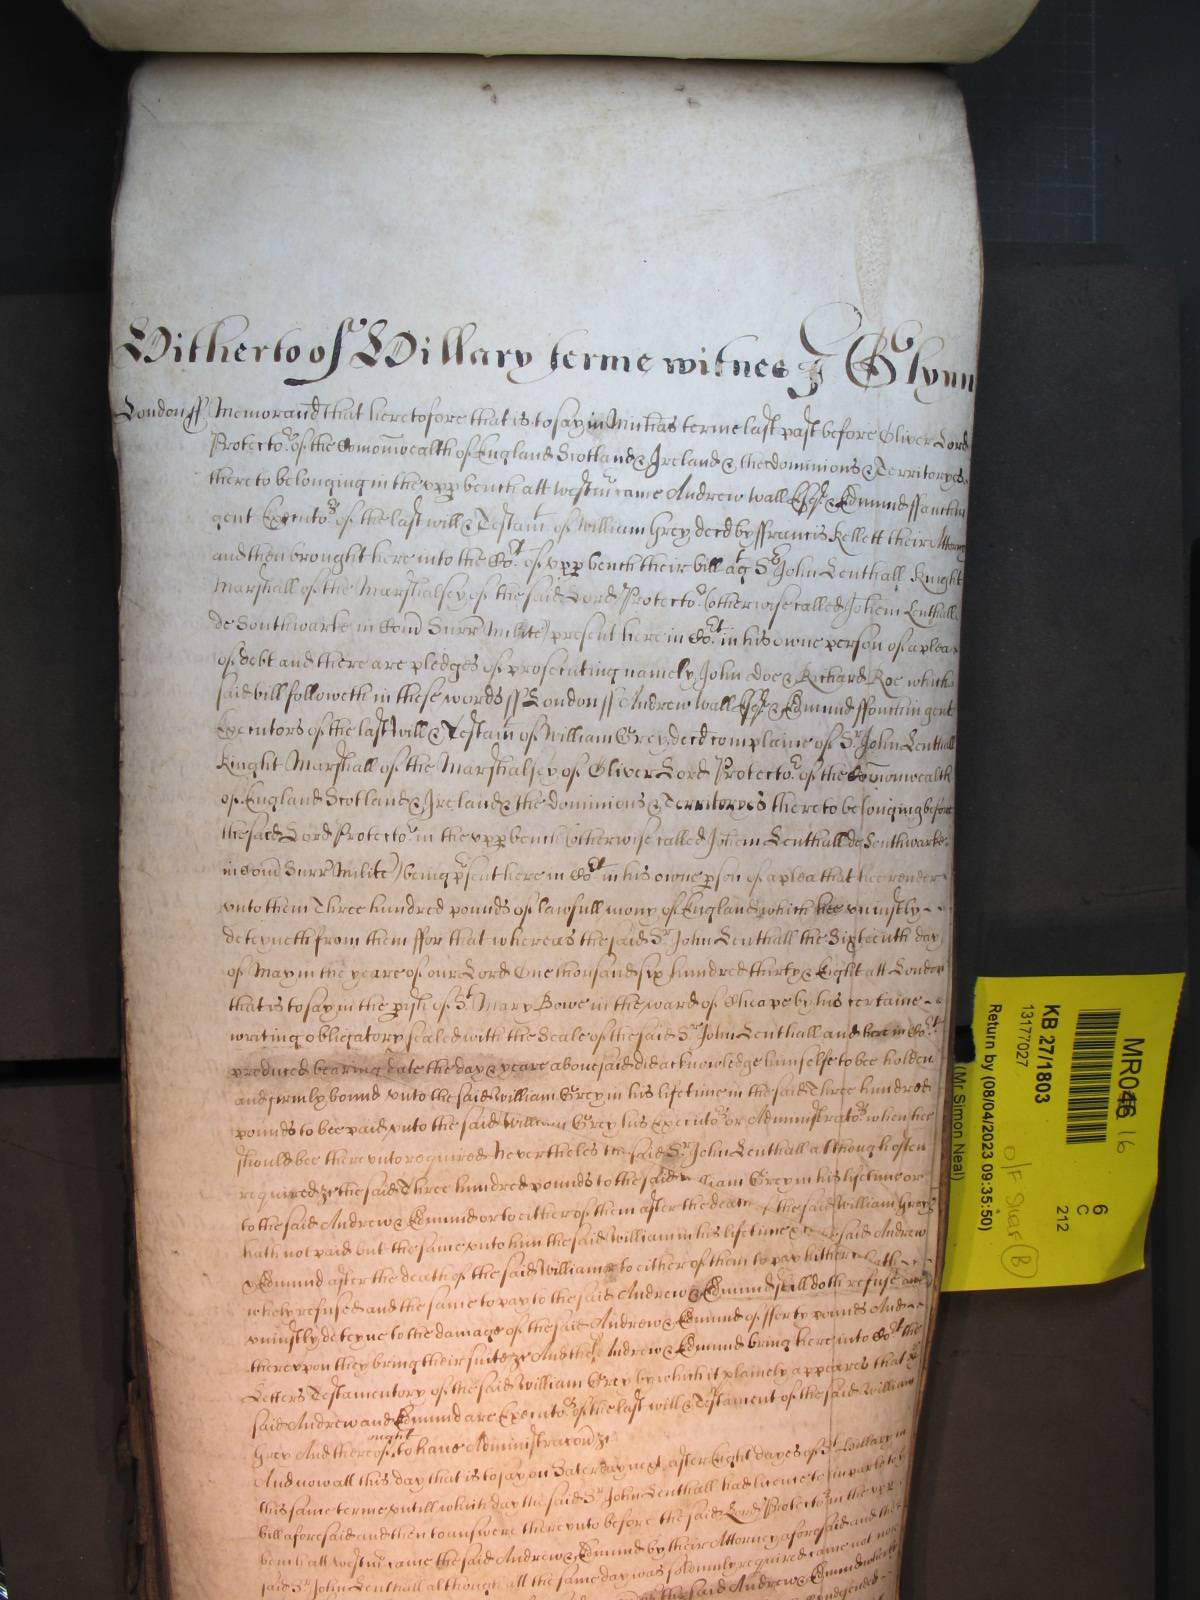 Hitherto of Hillary terme witnes J Glynn
London ss Memorand that heretofore that is to say in Michas terme last past before Oliver Lord
Protector of the Comonwealth of England Scotland & Ireland & the dominions & Territoryes
thereto belonging in the upp bench att Westm came Andrew Wall Esqr & Edmund ffanchin
gent Executors of the last will & Testamt of William Grey decd by ffrancis Kellett their Attorny
and then brought here into the Cort of upp bench their bill agt Sr John Lenthall Knight
Marshall of the Marshalsey of the said Lord Protector (otherwise called Johem Lenthall
de Southwarke in Com Surr Milite) present here in Cort in his owne person of a plea
of debt and there are pledges of prosecuting namely John Doe & Richard Roe which
said bill followeth in these words ss London ss Andrew Wall Esqr & Edmund ffonchin gent
Executors of the last will & Testamt of William Grey decd complaine of Sr John Lenthall
Knight Marshall of the Marshalsey of Oliver Lord Protector of the Comonwealth
of England Scotland & Ireland & the dominions & Territoryes thereto belonging before
the said Lord Protector in the upp bench (otherwise called Johem Lenthall de Southwarke
in Com Surr Milite) being psent here in Cort in his owne pson of a plea that hee render
unto them Three hundred pounds of lawfull mony of England which hee uniustly
deteyneth from them ffor that whereas the said Sr John Lenthall the Sixteenth day
of May in the yeare of our Lord One thousand six hundred thirty & Eight att London
that is to say in the pish of St Mary Bowe in the ward of Cheape by his certaine
writing obligatory sealed with the Seale of the said Sr John Lenthall and here in Cort
produced bearing date the day & yeare abovesaid did acknowledge himselfe to bee holden
and firmly bound unto the said William Grey in his lifetime in the said Three hundred
pounds to bee paid unto the said William Grey his executors or Administrators when hee
should bee thereunto required Nevertheles the said Sr John Lenthall although often
required &c the said Three hundred pounds to the said William Grey in his lifetime or
to the said Andrew & Edmund or to either of them after the death of the said William Grey
hath not paid but the same unto him the said William in his lifetime & said Andrew
& Edmund after the death of the said William or to either of them to pay hitherto hath
wholy refused and the same to pay to the said Andrew & Edmund still doth refuse and
uniustly deteyne to the damage of the said Andrew & Edmund of fforty pounds And
thereupon they bring their suite &c And the said Andrew & Edmund bring here into Cort the
Letters Testamentory of the said William Grey by which it plainely appeares that the
said Andrew and Edmund are Executors of the last will & Testament of the said William
Grey And thereof ought to have Administracon &c
And now att this day that is to say on Saterday next after Eight dayes of St Hillary in
this same terme untill which day the said Sr John Lenthall had licence to imparle to the
bill aforesaid and then to answere thereunto before the said Lord Protector in the upp
bench att Westm came the said Andrew & Edmund by their Attorney aforesaid and the
said Sr John Lenthall although att the same day was solemnly required came not nor
the said Andrew & Edmund
MR046 16
KB 27/1803
13177027
Return by (08/04/2023 09:35:50)
(Mr Simon Neal)
6
C
212
O/F Shelf B